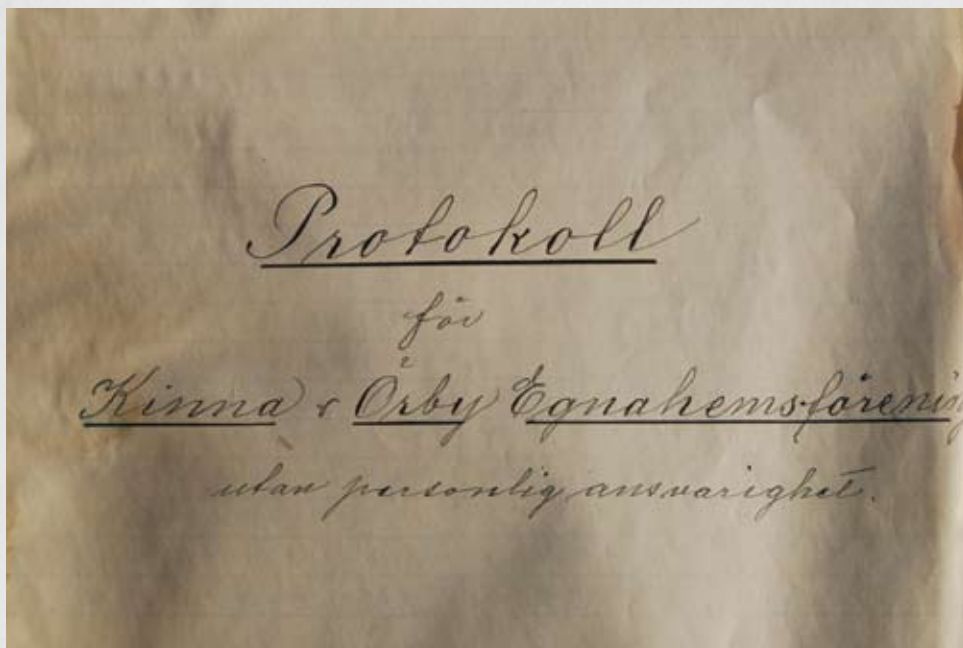 Protokoll
för
Kinna & Örby Egnahemsförening
utan personlig ansvarighet.